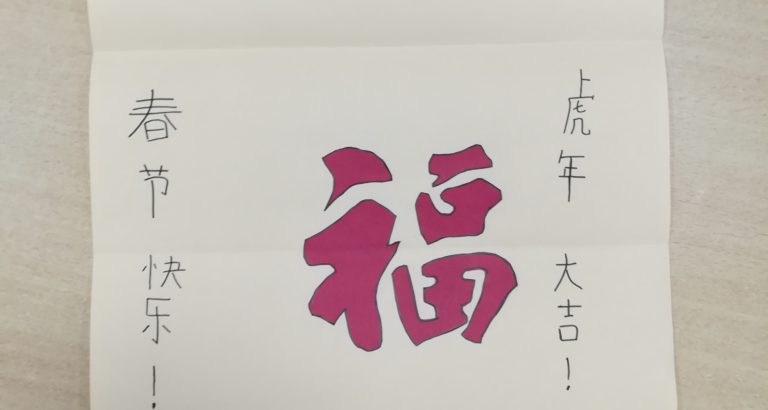 虎年大吉！
福
春节快乐！